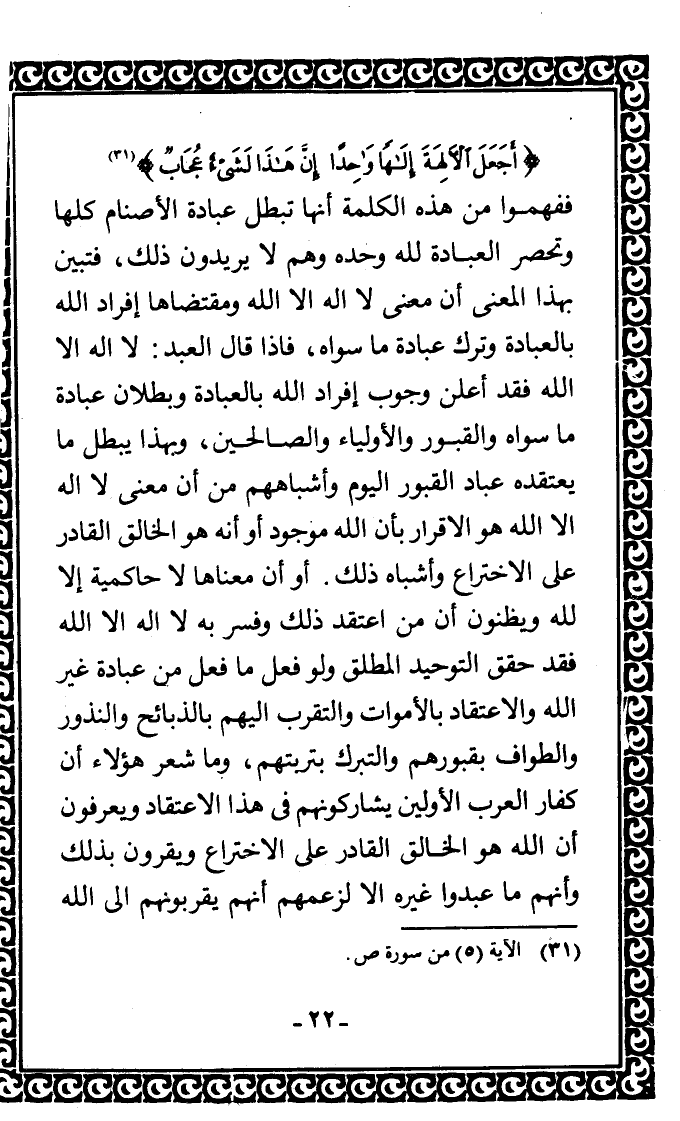 ﴿ أَجَعَلَ ٱلْأَلِهَةَ إِلَـٰهًا وَٰحِدًا إِنَّ هَـٰذَا لَشَىْءٌ عُجَابٌ ﴾(٣١)
ففهمـوا من هذه الكلمة أنها تبطل عبادة الأصنام كلها
وتحصر العبـادة لله وحده وهم لا يريدون ذلك، فتبين
بهذا المعنى أن معنى لا اله الا الله ومقتضاها إفراد الله
بالعبادة وترك عبادة ما سواه، فاذا قال العبد : لا اله الا
الله فقد أعلن وجوب إفراد الله بالعبادة وبطلان عبادة
ما سواه والقبـور والأولياء والصـالحـين، وبهذا يبطل ما
يعتقده عباد القبور اليوم وأشباههم من أن معنى لا اله
الا الله هو الاقرار بأن الله موجود أو أنه هو الخالق القادر
على الاختراع وأشباه ذلك. أو أن معناها لا حاكمية إلا
لله ويظنون أن من اعتقد ذلك وفسر به لا اله الا الله
فقد حقق التوحيد المطلق ولو فعل ما فعل من عبادة غير
الله والاعتقاد بالأموات والتقرب اليهم بالذبائح والنذور
والطواف بقبورهم والتبرك بتربتهم، وما شعر هؤلاء أن
كفار العرب الأولين يشاركونهم فى هذا الاعتقاد ويعرفون
أن الله هو الخـالق القادر على الاختراع ويقرون بذلك
وأنهم ما عبدوا غيره الا لزعمهم أنهم يقربونهم الى الله
(٣١) الآية (٥) من سورة ص.
- ٢٢ -